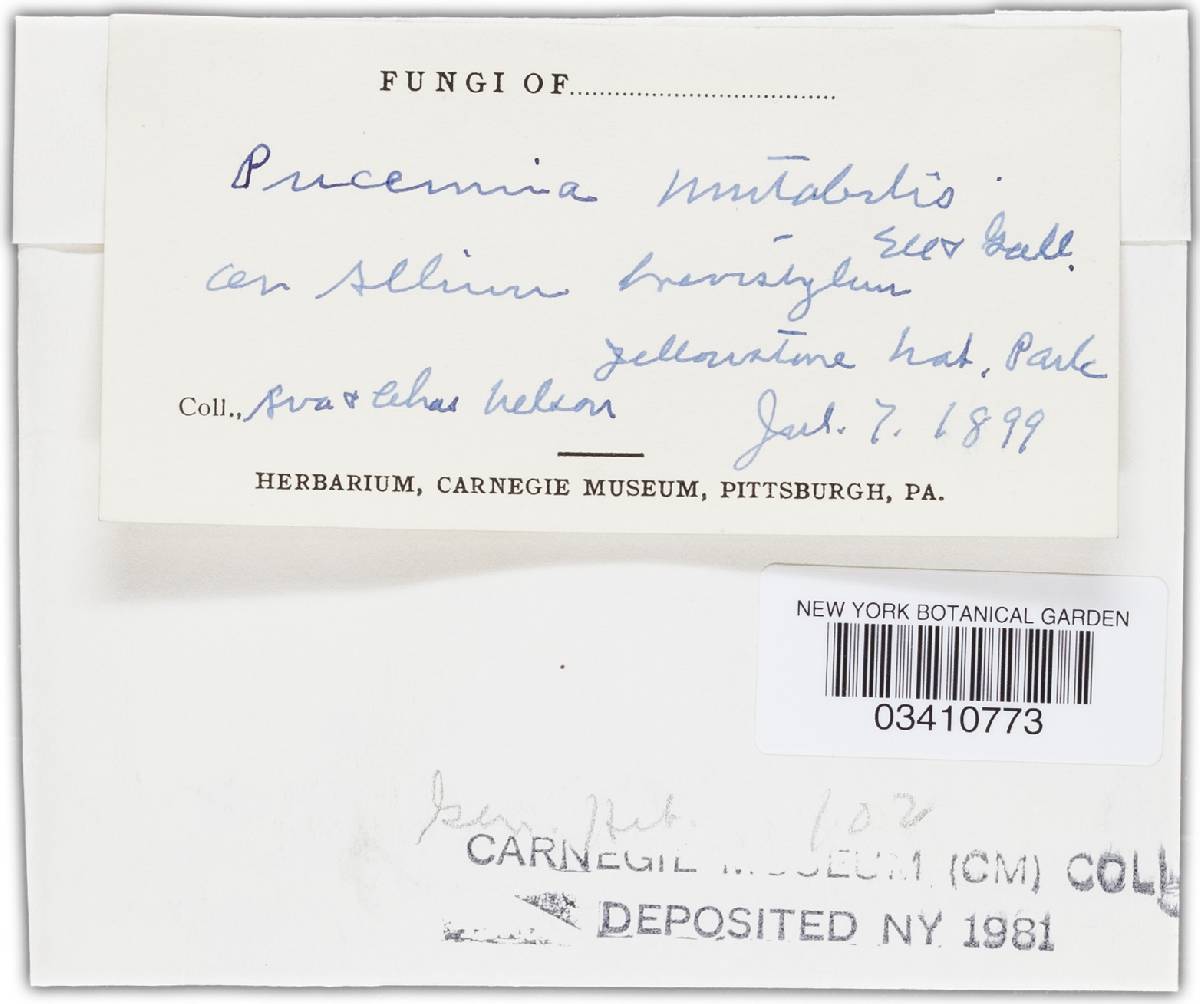 FUNGI OF
Puccinia mutabilis
Ell & Gall.
on Allium brevistylum
Yellowstone Nat. Park
Coll., Ava & Chas Nelson Jul. 7. 1899
HERBARIUM, CARNEGIE MUSEUM, PITTSBURGH, PA.
NEW YORK BOTANICAL GARDEN
03410773
Gen. Heb. 102
CARNEGIE MUSEUM (CM) COLL
DEPOSITED NY 1981